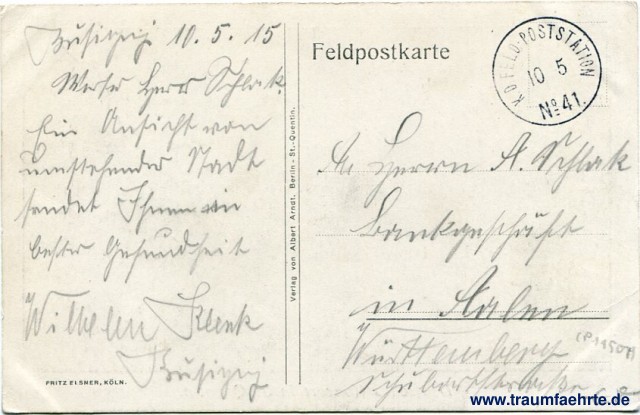 Busigny 10.5.15
Werter Herr Schlak.
Ein Ansicht von
umstehender Stadt
sendet Ihnen in
bester Gesundheit
Wilhelm Klenk
Busigny
FRITZ ELSNER, KÖLN.
Verlag von Albert Arndt, Berlin - St.-Quentin.
Feldpostkarte
K.D. FELD-POSTSTATION
10 5
No 41.
Herrn A. Schlak
Bankgeschäft
in Aalen
Württemberg
Schubartstrasse
www.traumfaehrte.de